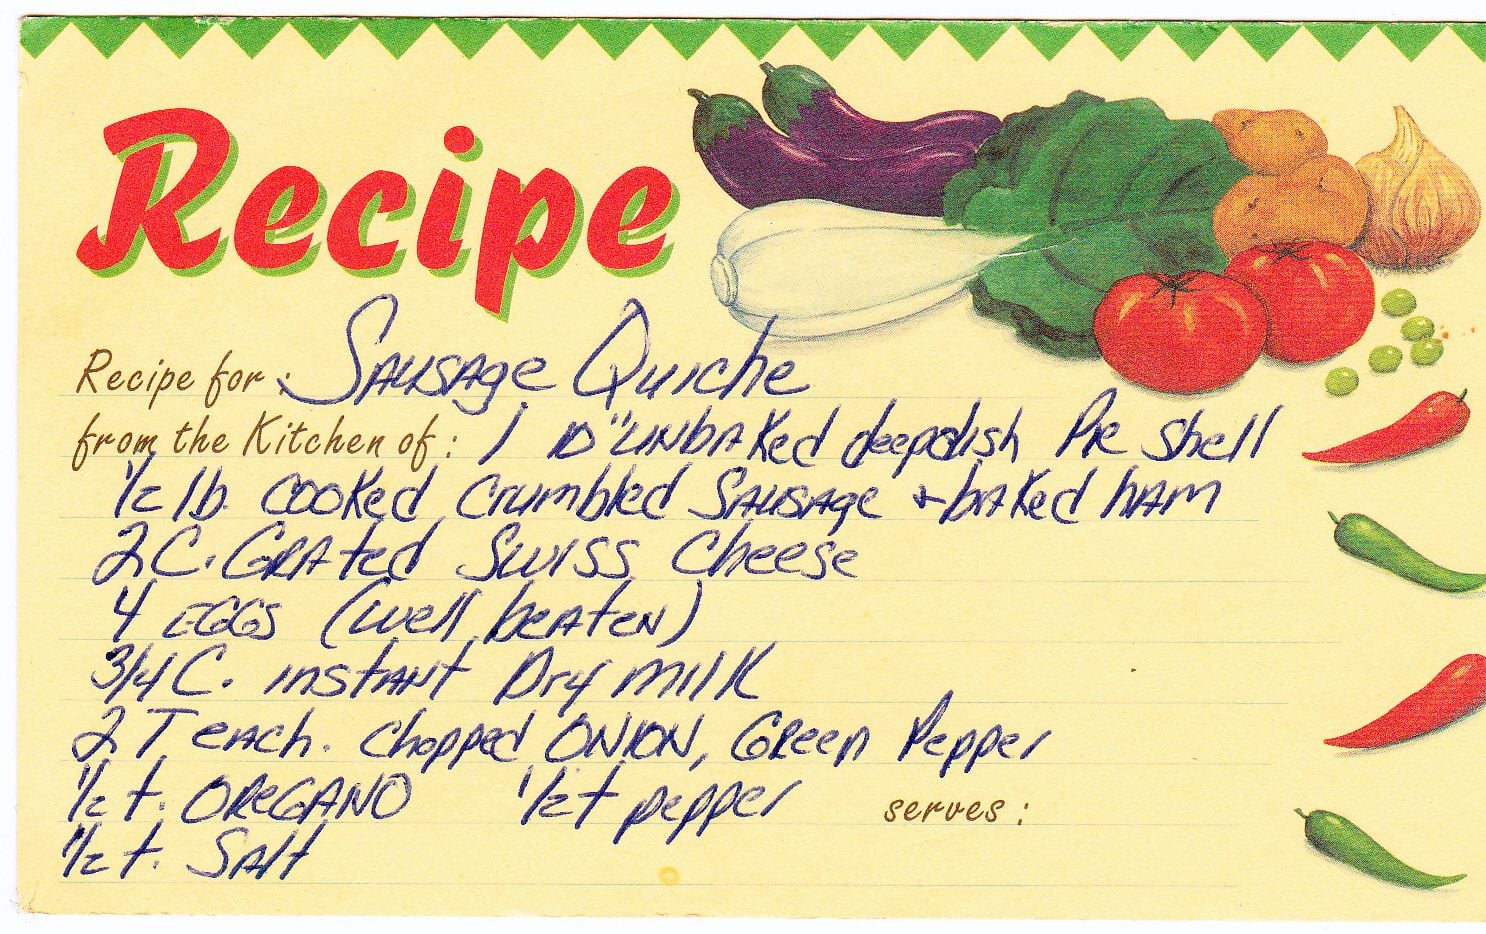 Recipe
Recipe for: Sausage Quiche
from the Kitchen of: 1 10" unbaked deepdish Pie shell
1/2 lb. cooked crumbled Sausage + baked ham
2 C. Grated Swiss Cheese
4 EGGS (well beaten)
3/4 C. instant Dry milk
2 T each. chopped ONION, Green Pepper
1/2 t. OREGANO 1/2 t pepper serves:
1/2 t. Salt